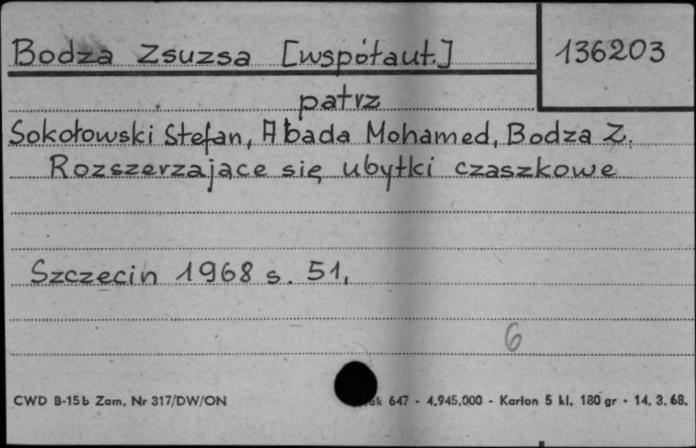 Bodza Zsuzsa [współaut.] 136203
patrz
Sokołowski Stefan, Abada Mohamed, Bodza Z.
Rozszerzające się ubytki czaszkowe
Szczecin 1968 s. 51,
6
CWD B-15b Zam. Nr 317/DW/ON 647 - 4.945.000 - Karton 5 kl. 180 gr - 14. 3. 68.